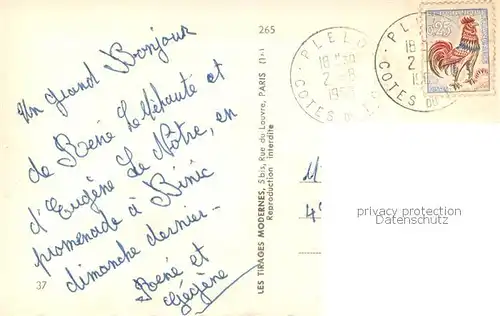 265
Un grand Bonjour
de René Le Déhaute et
d'Eugène Le Nôtre, en
promenade à Binic
dimanche dernier -
René et
Gégène
37
LES TIRAGES MODERNES, 5 bis, Rue du Louvre, PARIS (1er)
Reproduction interdite
PLELO
18 H 30
2 - 8
COTES DU
PLE
18
2
COTES DU
0,25
M
4
privacy protection
Datenschutz